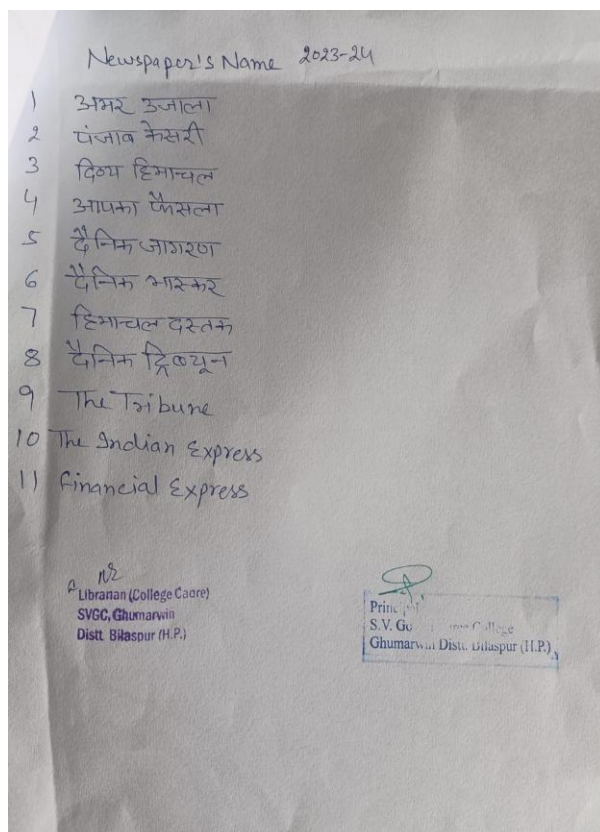 Newspaper's Name 2023-24
1 अमर उजाला
2 पंजाब केसरी
3 दिव्य हिमाचल
4 आपका फैसला
5 दैनिक जागरण
6 दैनिक भास्कर
7 हिमाचल दस्तक
8 दैनिक ट्रिब्यून
9 The Tribune
10 The Indian Express
11 Financial Express
Librarian (College Cadre)
SVGC, Ghumarwin
Distt. Bilaspur (H.P.)
S.V. College
Ghumarwin Distt. Bilaspur (H.P.)